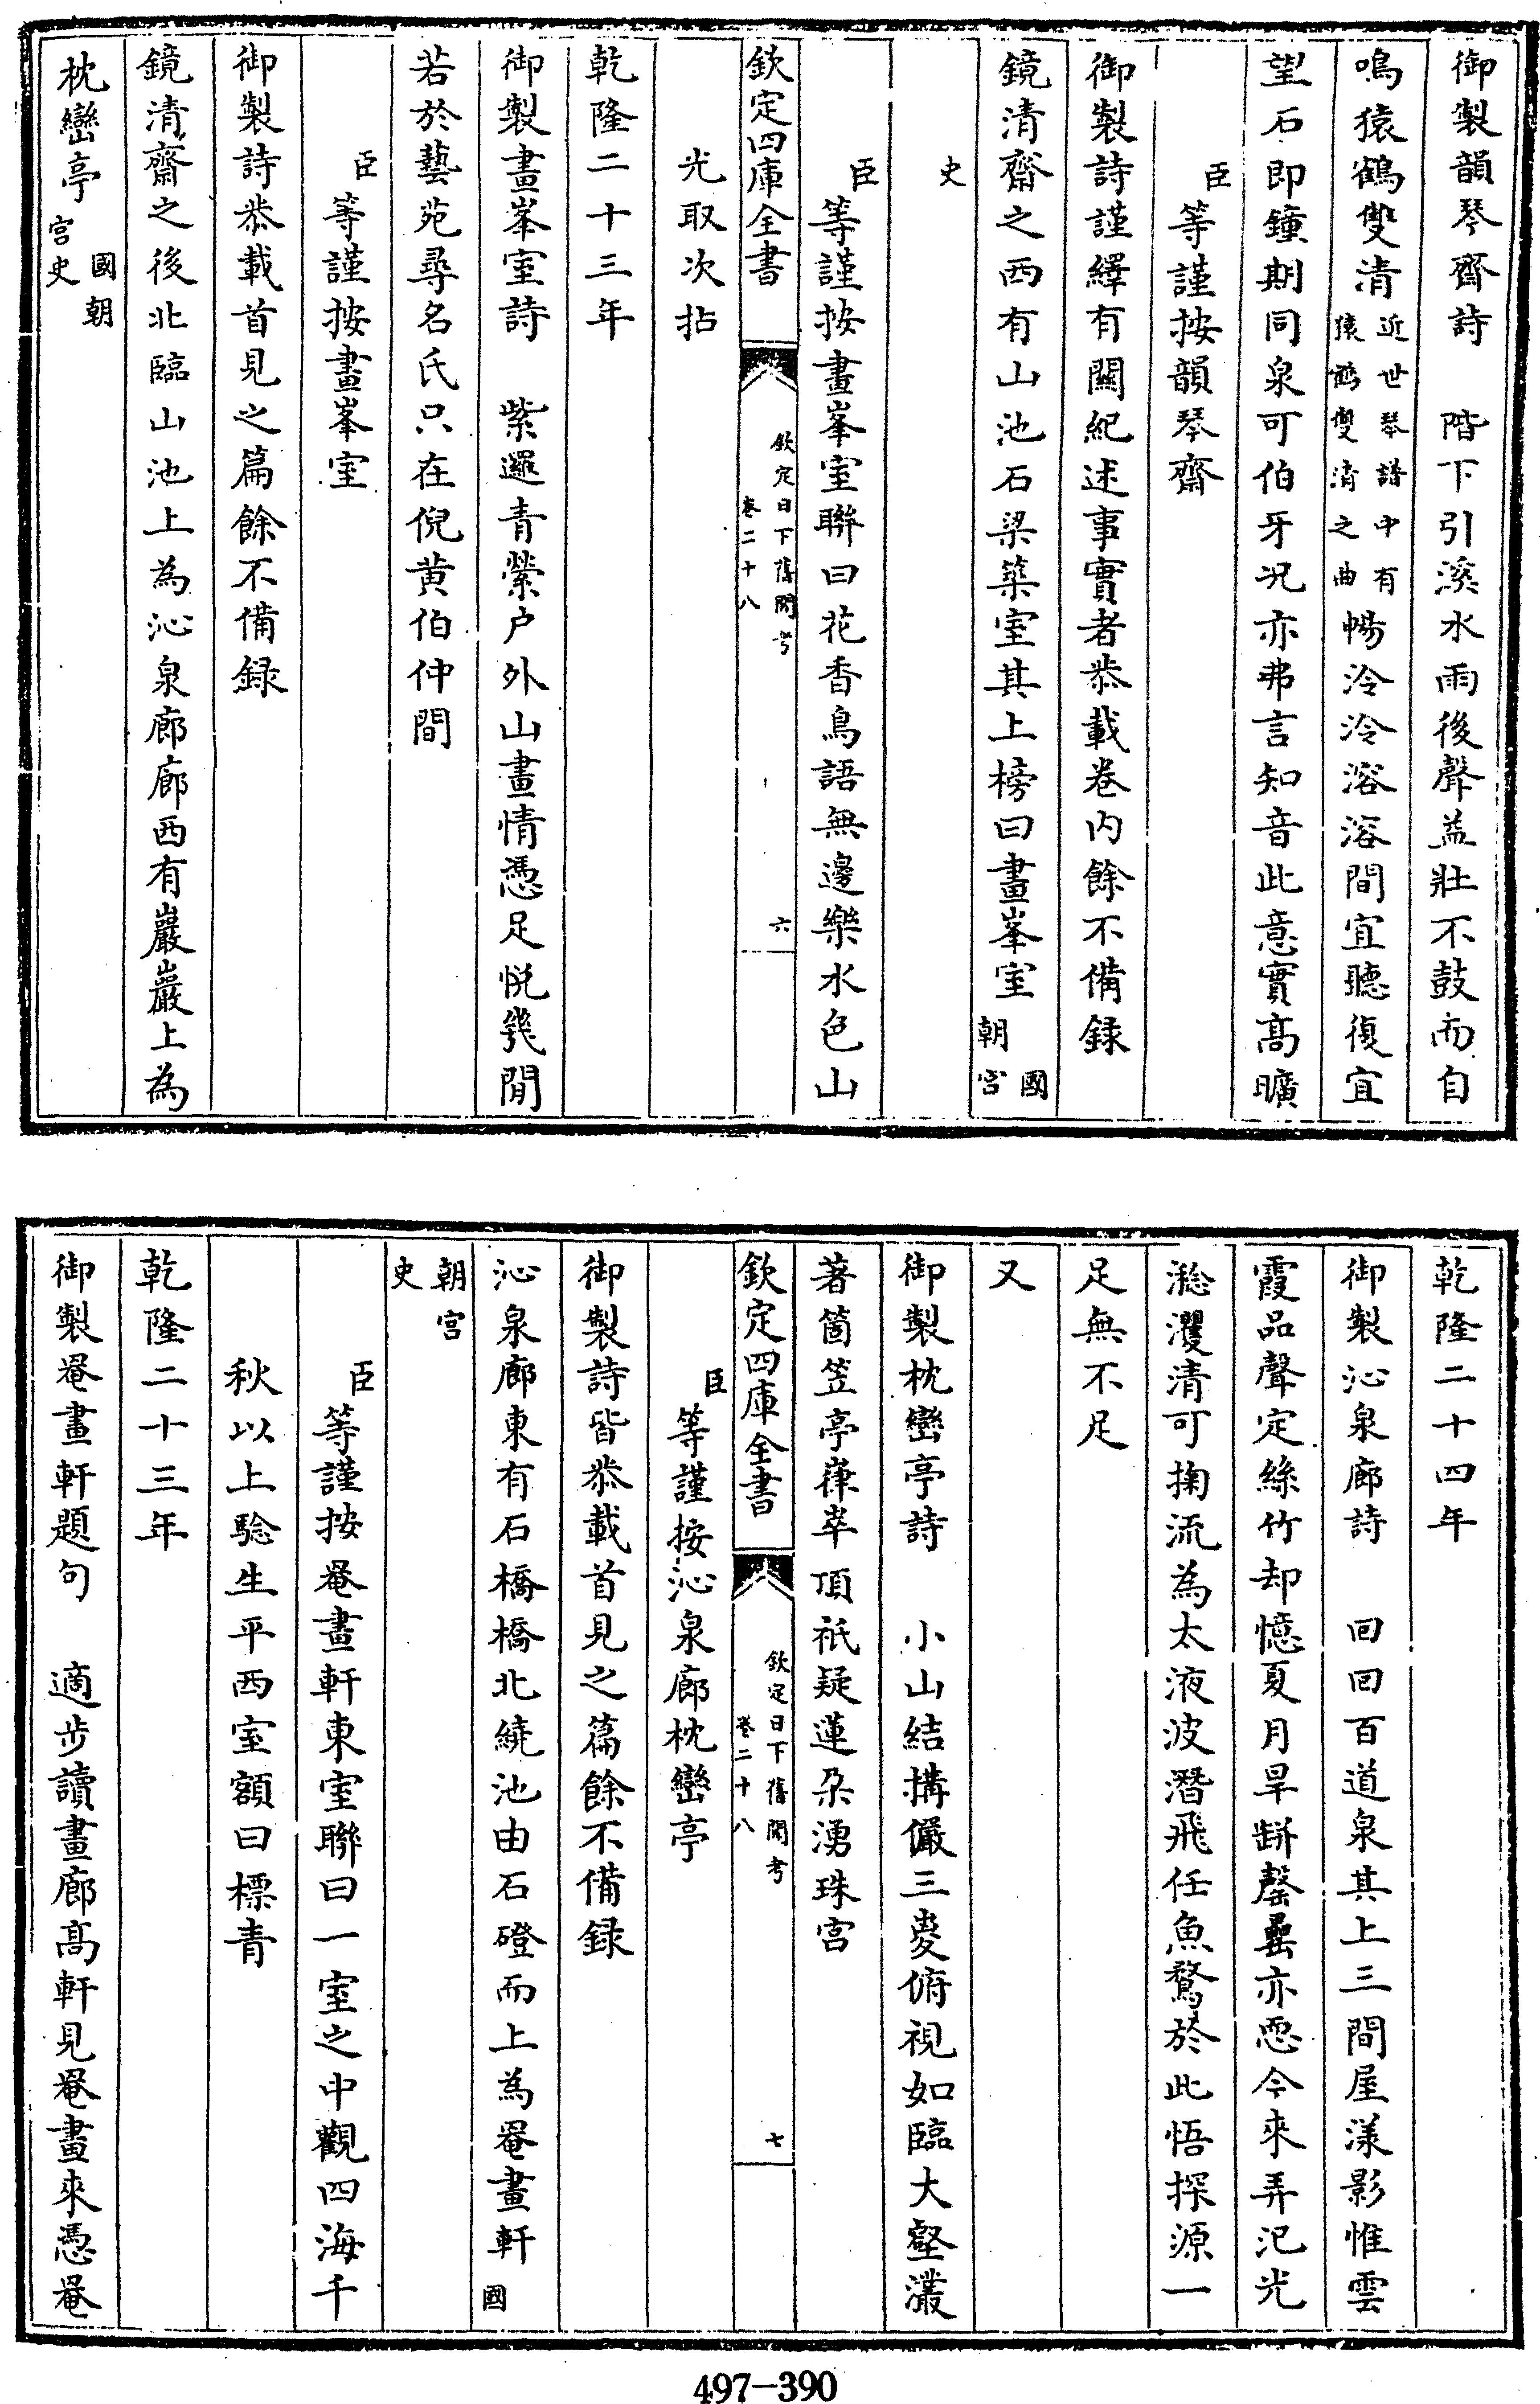 御製韻琴齋詩　階下引溪水雨後聲益壯不鼓而自
鳴猿鶴雙清近世琴譜中有猿鶴雙清之曲暢泠泠溶溶間宜聽復宜
望石即鐘期同泉可伯牙况亦弗言知音此意實髙曠
臣等謹按韻琴齋
御製詩謹繹有闗紀述事實者恭載卷内餘不備録
鏡清齋之西有山池石梁築室其上榜曰畫峯室國朝宫
史
臣等謹按畫峯室聯曰花香鳥語無邊樂水色山
光取次拈
乾隆二十三年
御製畫峯室詩　紫邏青縈户外山畫情憑足悦幾閒
若於藝苑尋名氏只在倪黄伯仲間
臣等謹按畫峯室
御製詩恭載首見之篇餘不備録
鏡清齋之後北臨山池上為沁泉廊廊西有巖巖上為
枕巒亭國朝宫史
欽定四庫全書
欽定日下舊聞考
卷二十八
六
乾隆二十四年
御製沁泉廊詩　回回百道泉其上三間屋漾影惟雲
霞品聲定絲竹却憶夏月旱缾罄罍亦恧今來弄汜光
淰灈清可掬流為太液波潛飛任魚鶩於此悟探源一
足無不足
又
御製枕巒亭詩　小山結搆儼三嵏俯視如臨大壑灇
著箇笠亭嵂崒頂祇疑蓮朶湧珠宫
臣等謹按沁泉廊枕巒亭
御製詩皆恭載首見之篇餘不備録
沁泉廊東有石橋橋北繞池由石磴而上為罨畫軒國
朝宫史
臣等謹按罨畫軒東室聯曰一室之中觀四海千
秋以上驗生平西室額曰標青
乾隆二十三年
御製罨畫軒題句　適步讀畫廊髙軒見罨畫來憑罨
欽定四庫全書
欽定日下舊聞考
卷二十八
七
497-390